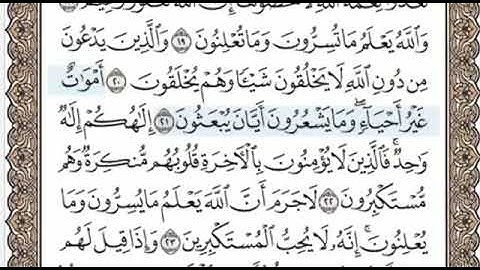 تَعُدُّوا۟ نِعْمَةَ ٱللَّهِ لَا تُحْصُوهَآ إِنَّ ٱللَّهَ لَغَفُورٌ رَّحِيمٌ
وَٱللَّهُ يَعْلَمُ مَا تُسِرُّونَ وَمَا تُعْلِنُونَ ١٩ وَٱلَّذِينَ يَدْعُونَ
مِن دُونِ ٱللَّهِ لَا يَخْلُقُونَ شَيْـًٔا وَهُمْ يُخْلَقُونَ ٢٠ أَمْوَٰتٌ
غَيْرُ أَحْيَآءٍ ۖ وَمَا يَشْعُرُونَ أَيَّانَ يُبْعَثُونَ ٢١ إِلَٰهُكُمْ إِلَٰهٌ
وَٰحِدٌ ۚ فَٱلَّذِينَ لَا يُؤْمِنُونَ بِٱلْأَخِرَةِ قُلُوبُهُم مُّنكِرَةٌ وَهُم
مُّسْتَكْبِرُونَ ٢٢ لَا جَرَمَ أَنَّ ٱللَّهَ يَعْلَمُ مَا يُسِرُّونَ وَمَا
يُعْلِنُونَ ۚ إِنَّهُۥ لَا يُحِبُّ ٱلْمُسْتَكْبِرِينَ ٢٣ وَإِذَا قِيلَ لَهُم